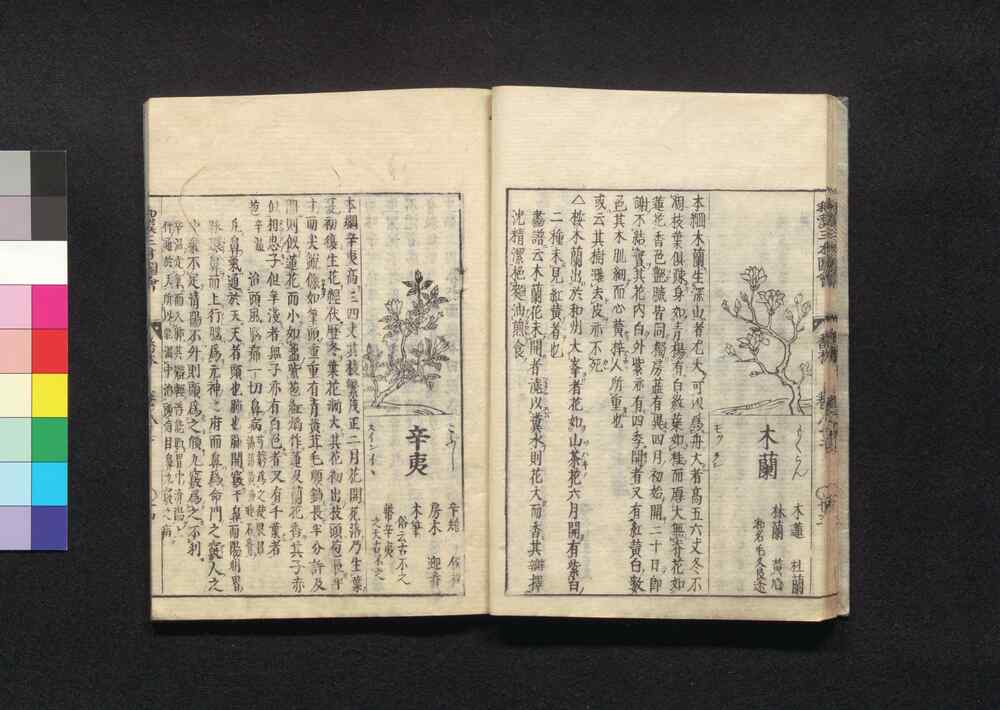 もくらん
木蘭
モク ラン
木蓮 杜蘭
林蘭 黃心
本綱木蘭生深山者尤大可以爲舟大者高五六丈冬不
凋枝葉俱疎身如青楊有白紋葉如桂而厚大無脊花如
蓮花香色艷膩皆同獨房蘂有異四月初始開二十日即
謝不結實其花內白外紫亦有四季開者又有紅黃白數
色其木肌細而心黃梓人所重也
或云其樹雖去皮亦不死
△按木蘭出於和州大峯者花如山茶花六月開有紫白
二種未見紅黃者也
畵譜云木蘭花未開者澆以糞水則花大而香其瓣擇
洗精潔拖麪油煎食
辛夷
スインイヽ
辛雉
房木 迎春
木筆
俗云古不之
本綱辛夷高三四丈其枝繁茂正二月花開花落乃生葉
夏初復生花經伏歷冬葉花漸大其花初出枝頭苞長半
寸而尖銳儼如筆頭重重有青黃茸毛順鋪長半分許及
開則似蓮花而小如盞紫苞紅焰作蓮及蘭花香其子赤
似相思子但辛淺者無子亦有白色者又有千葉者
苞辛溫 治頭風腦痛一切鼻病
凡鼻氣通於天天者頭也肺也肺開竅于鼻而陽明胃
脉環鼻而上行腦爲元神之府而鼻爲命門之竅人之
中氣不足清陽不升則頭爲之傾九竅爲之不利